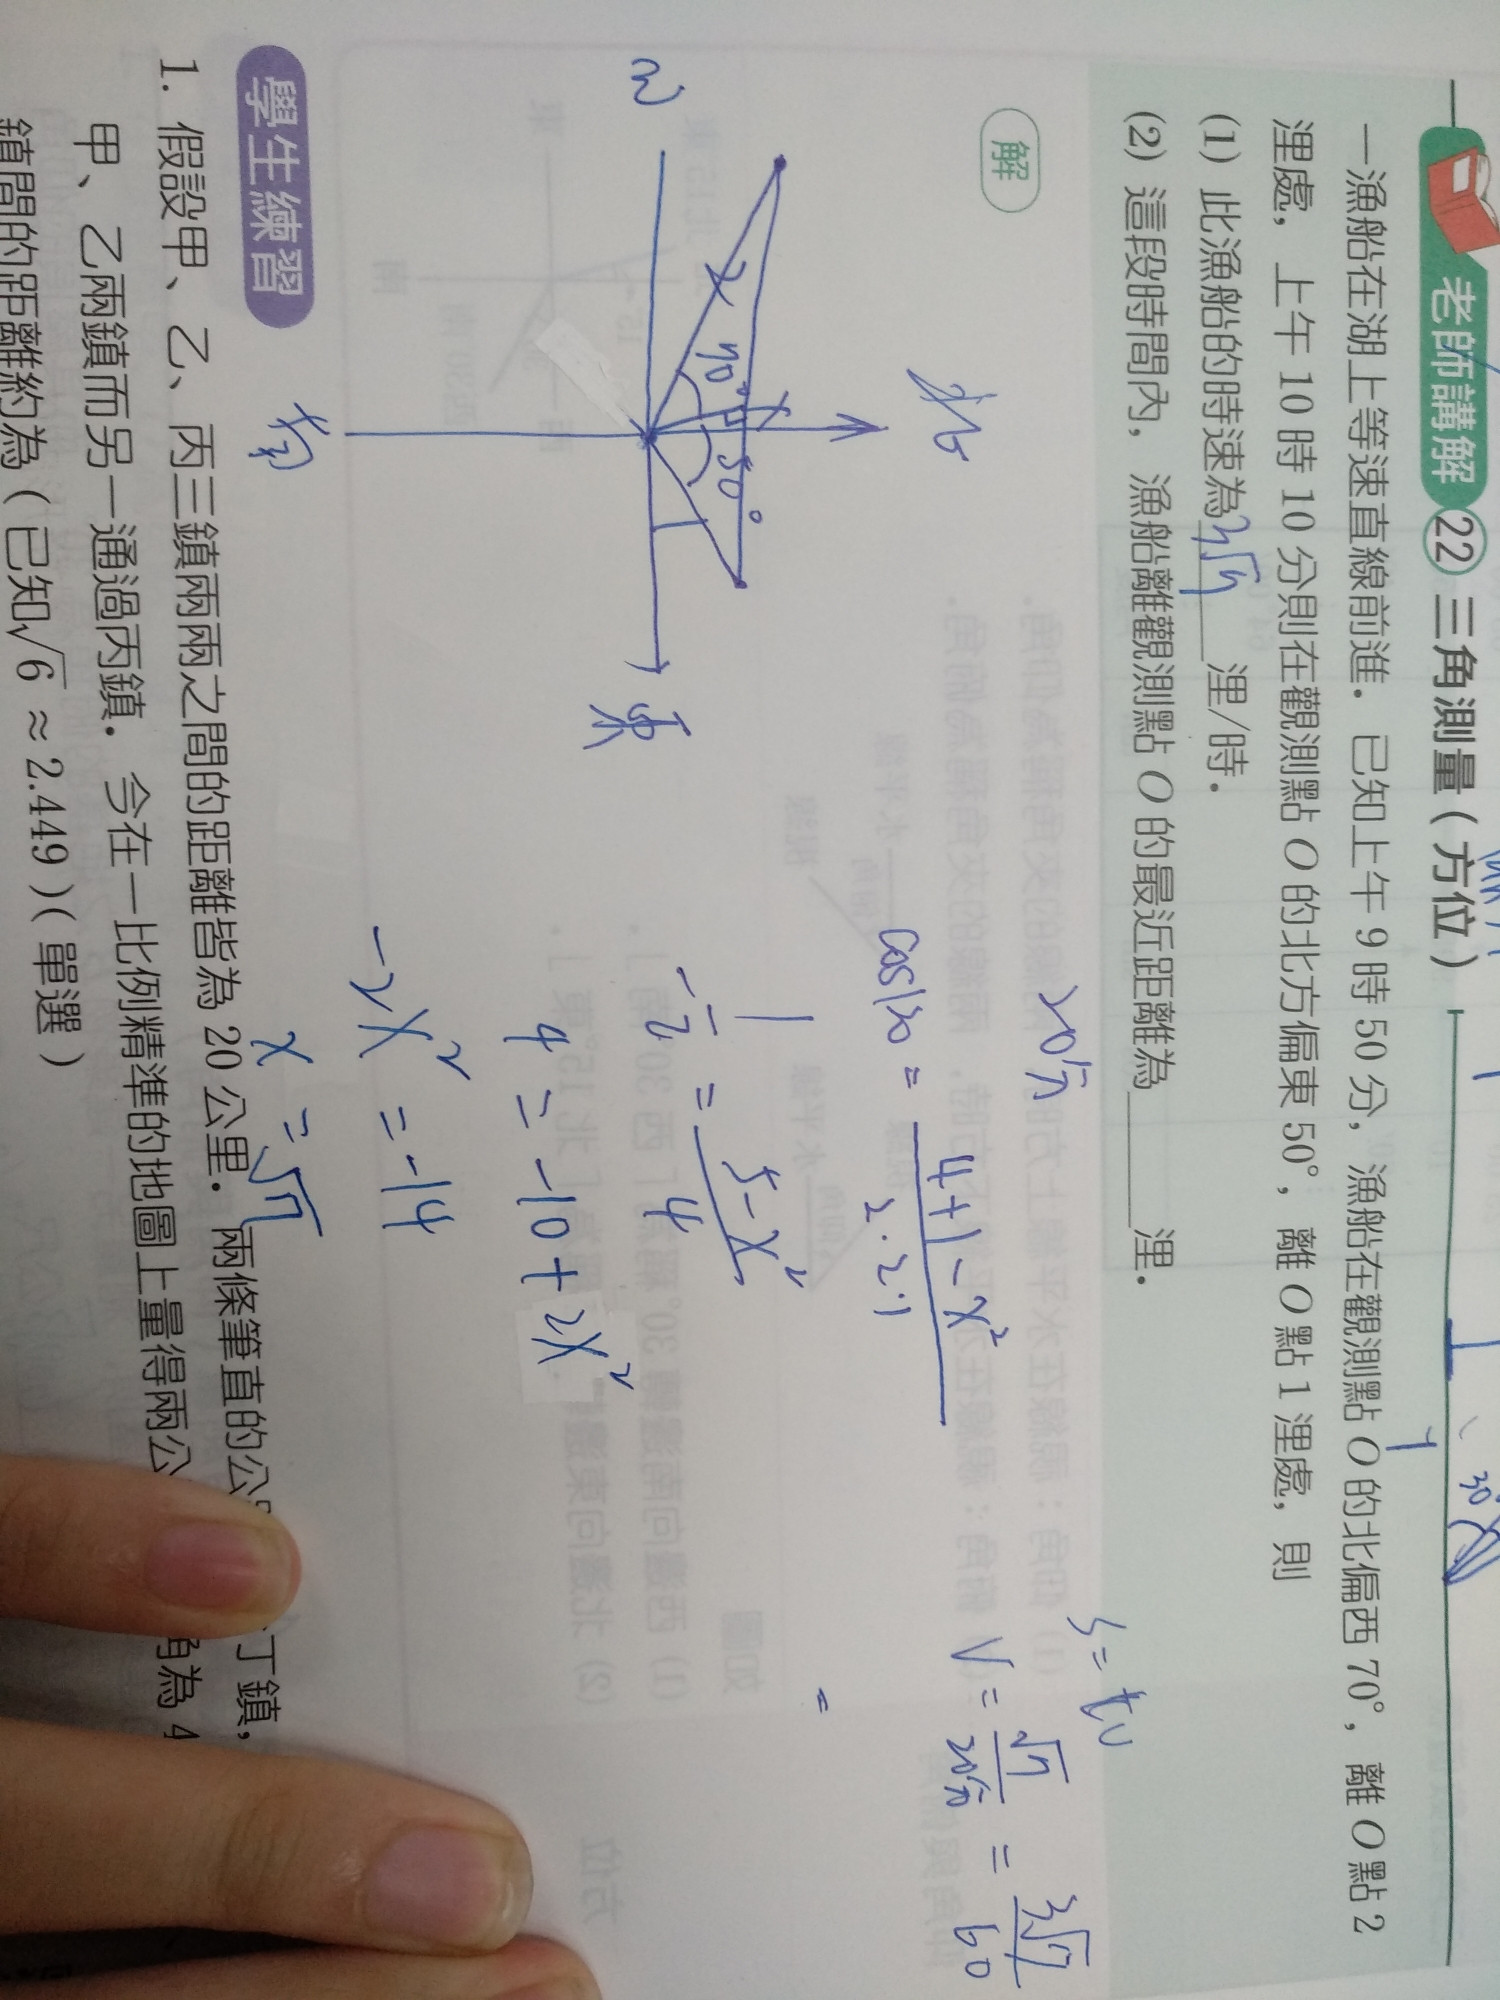 老師講解 22 三角測量(方位)
一漁船在湖上等速直線前進. 已知上午 9 時 50 分, 漁船在觀測點 O 的北偏西 70°, 離 O 點 2
浬處, 上午 10 時 10 分則在觀測點 O 的北方偏東 50°, 離 O 點 1 浬處, 則
(1) 此漁船的時速為 3√7 浬/時.
(2) 這段時間內, 漁船離觀測點 O 的最近距離為______浬.
解
北
2
70°
50°
東
20分
cos120 = (4+1-x²)/(2·2·1)
-1/2 = (5-x²)/4
4 = -10+2x²
-2x² = -14
x = √7
s = tv
V = √7/20分 = 3√7/60
=
30°
學生練習
1. 假設甲、乙、丙三鎮兩兩之間的距離皆為 20 公里. 兩條筆直的公
丁鎮,
甲、乙兩鎮而另一通過丙鎮. 今在一比例精準的地圖上量得兩公
角為 4
鎮間的距離約為 ( 已知√6 ≈ 2.449 ) ( 單選 )